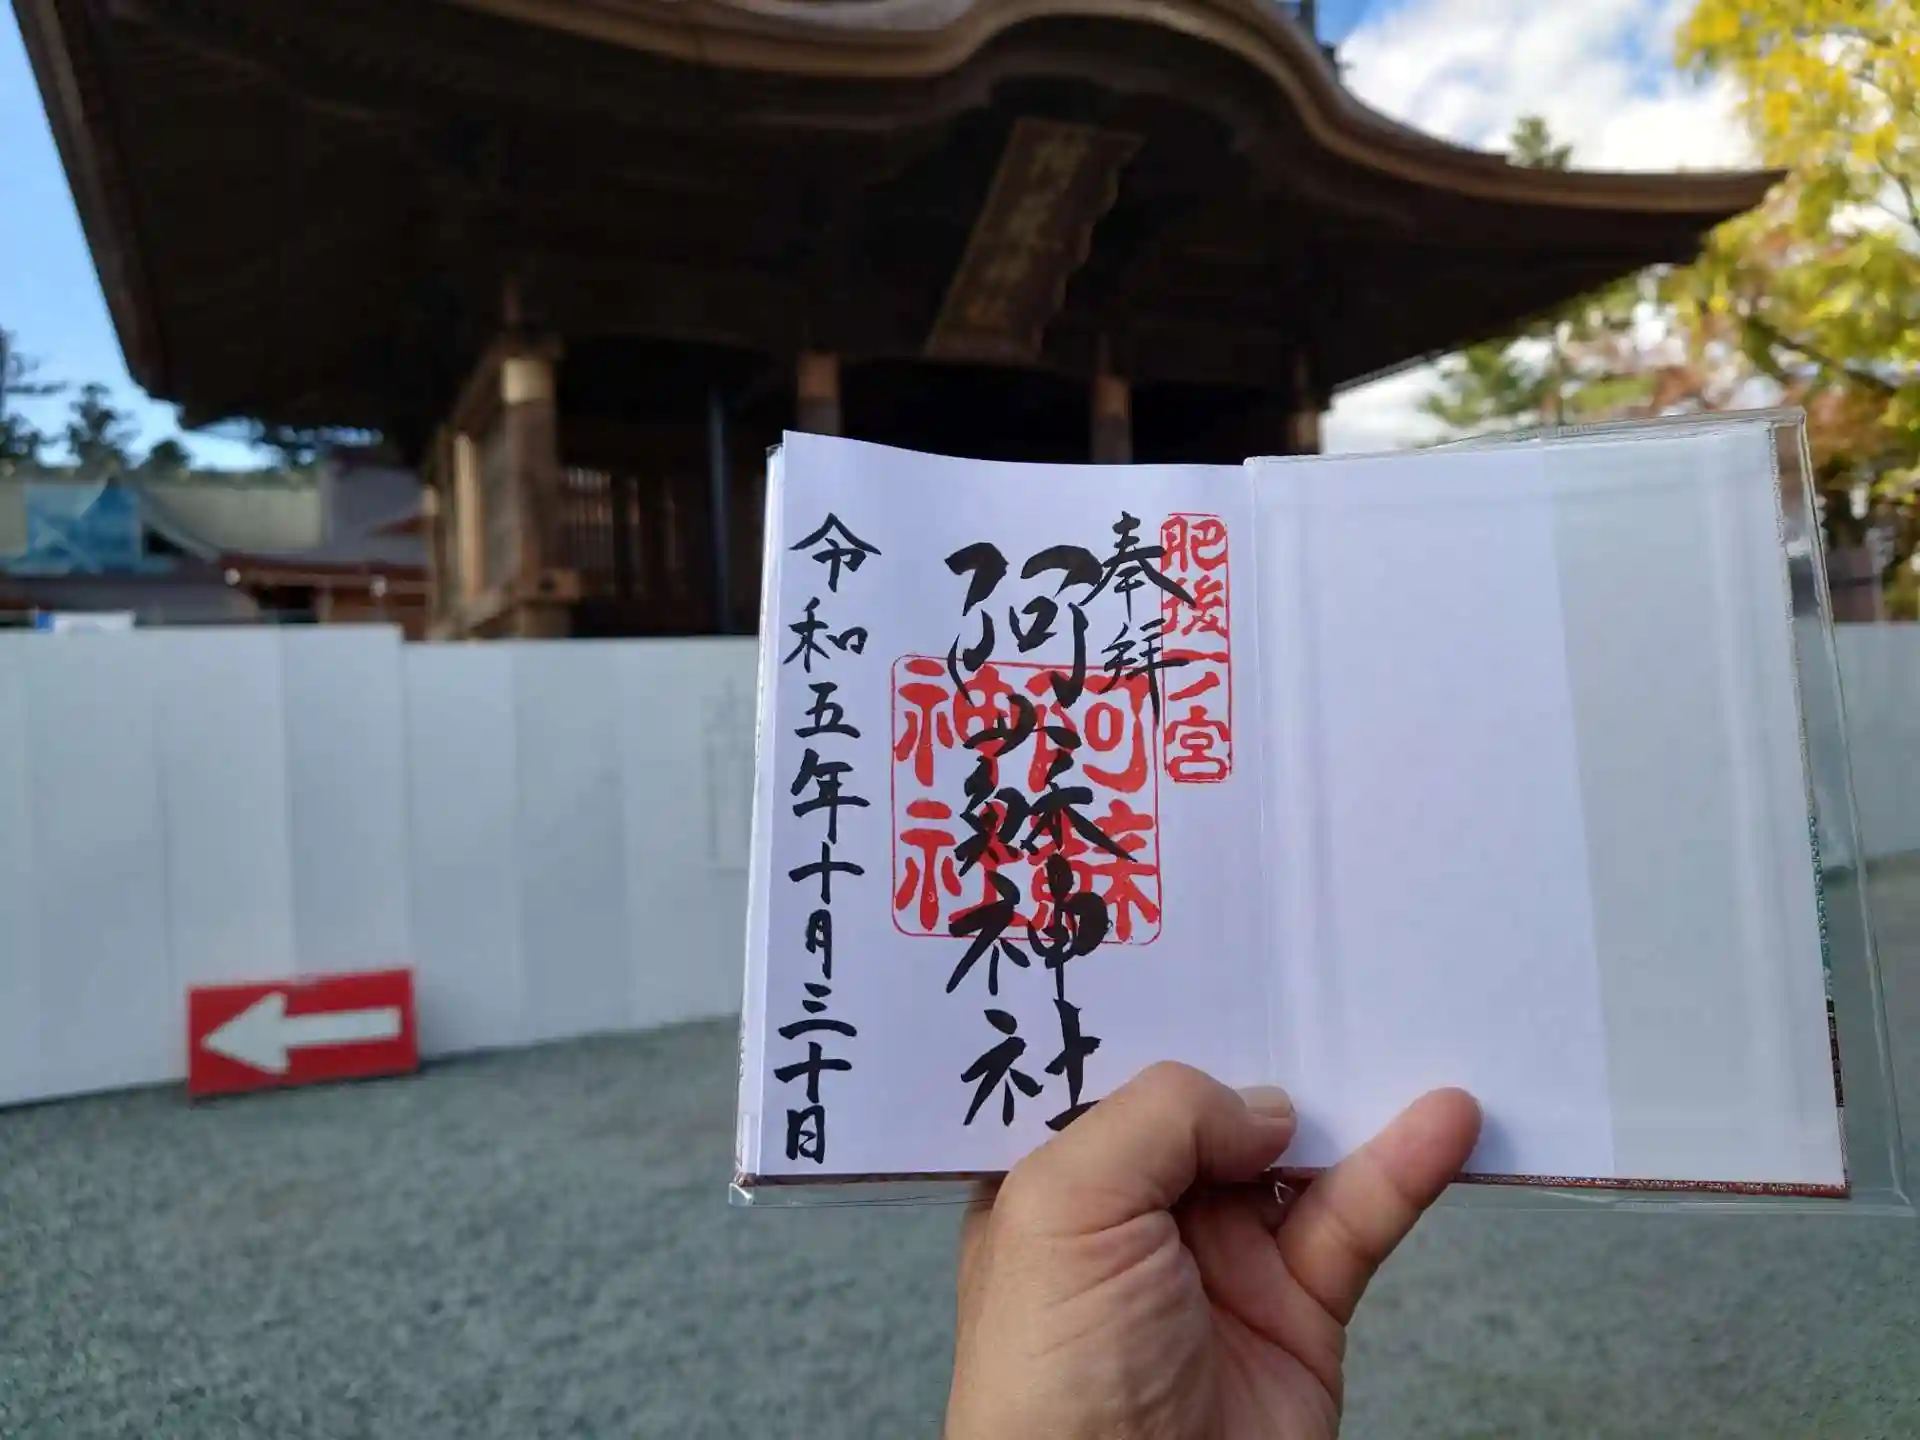 肥後一ノ宮
奉拝
阿蘇神社
阿蘇
神社
令和五年十月三十日